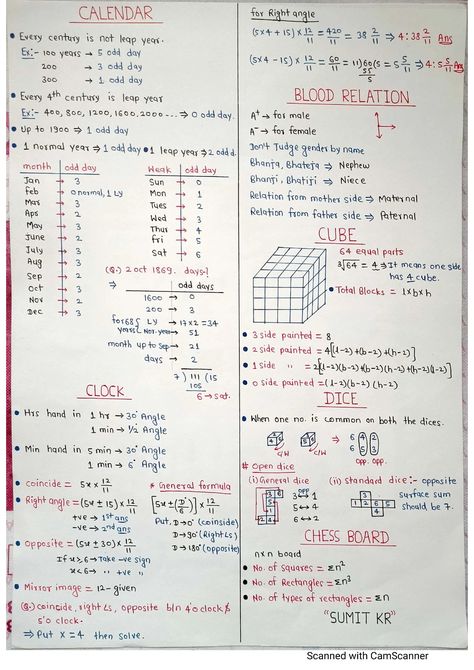 CALENDAR
• Every century is not leap year.
Ex:- 100 years → 5 odd day
200 → 3 odd day
300 → 1 odd day
• Every 4th century is leap year
Ex:- 400, 800, 1200, 1600, 2000 ... ⇒ 0 odd day.
• Up to 1900 ⇒ 1 odd day
• 1 normal year ⇒ 1 odd day • 1 leap year ⇒ 2 odd d.
month odd day
Jan → 3
Feb → 0 normal, 1 LY
Mar → 3
Apr → 2
May → 3
June → 2
July → 3
Aug → 3
Sep → 2
Oct → 3
Nov → 2
Dec → 3
Weak odd day
Sun → 0
Mon → 1
Tues → 2
Wed → 3
Thur → 4
Fri → 5
Sat → 6
(Q.) 2 oct 1869. days-?
⇒ odd days
1600 → 0
200 → 3
for 68 years { LY → 17×2 = 34
Nor. year → 51
month up to Sep → 21
days → 2
7) 111 (15
105
6 → sat.
CLOCK
• Hrs hand in 1 hr → 30° Angle
1 min → 1/2 Angle
• Min hand in 5 min → 30° Angle
1 min → 6° Angle
• coincide = 5x × 12/11
• Right angle = (5x ± 15) × 12/11
+ve → 1st ans
-ve → 2nd ans
• Opposite = (5x ± 30) × 12/11
If x ≥ 6 → Take -ve sign
x < 6 → " +ve "
* General formula
[5x ± (D°/6)] × 12/11
Put, D → 0° (coinside)
D → 90° (Right Ls)
D → 180° (opposite)
• Mirror image = 12 - given
(Q.) coincide, right Ls, opposite b/n 4 o'clock &
5 o'clock.
⇒ Put x = 4 then solve.
for Right angle
(5×4 + 15) × 12/11 = 420/11 = 38 2/11 ⇒ 4:38 2/11 Ans
(5×4 - 15) × 12/11 = 60/11 = 11) 60 (5 = 5 5/11 ⇒ 4:5 5/11 Ans
55
5
BLOOD RELATION
A+ → for male
A- → for female
Don't Judge gender by name
Bhanja, Bhateja → Nephew
Bhanji, Bhatiji → Niece
Relation from mother side → Maternal
Relation from father side → Paternal
CUBE
64 equal parts
3√64 = 4 ⇒ It means one side
has 4 cube.
• Total Blocks = l×b×h
• 3 side painted = 8
• 2 side painted = 4[(l-2)+(b-2)+(h-2)]
• 1 side " = 2[(l-2)(b-2)+(b-2)(h-2)+(h-2)(l-2)]
• 0 side painted = (l-2)(b-2)(h-2)
DICE
• When one no. is common on both the dices.
C/W C/W ⇒
6 4 2
6 5 3
opp. opp.
# Open dice
(i) General dice
opp
3 ↔ 1
5 ↔ 4
6 ↔ 2
(ii) standard dice:- opposite
surface sum
should be 7.
CHESS BOARD
n×n board
• No. of Squares = Σn²
• No. of Rectangles = Σn³
• No. of types of rectangles = Σn
"SUMIT KR"
Scanned with CamScanner